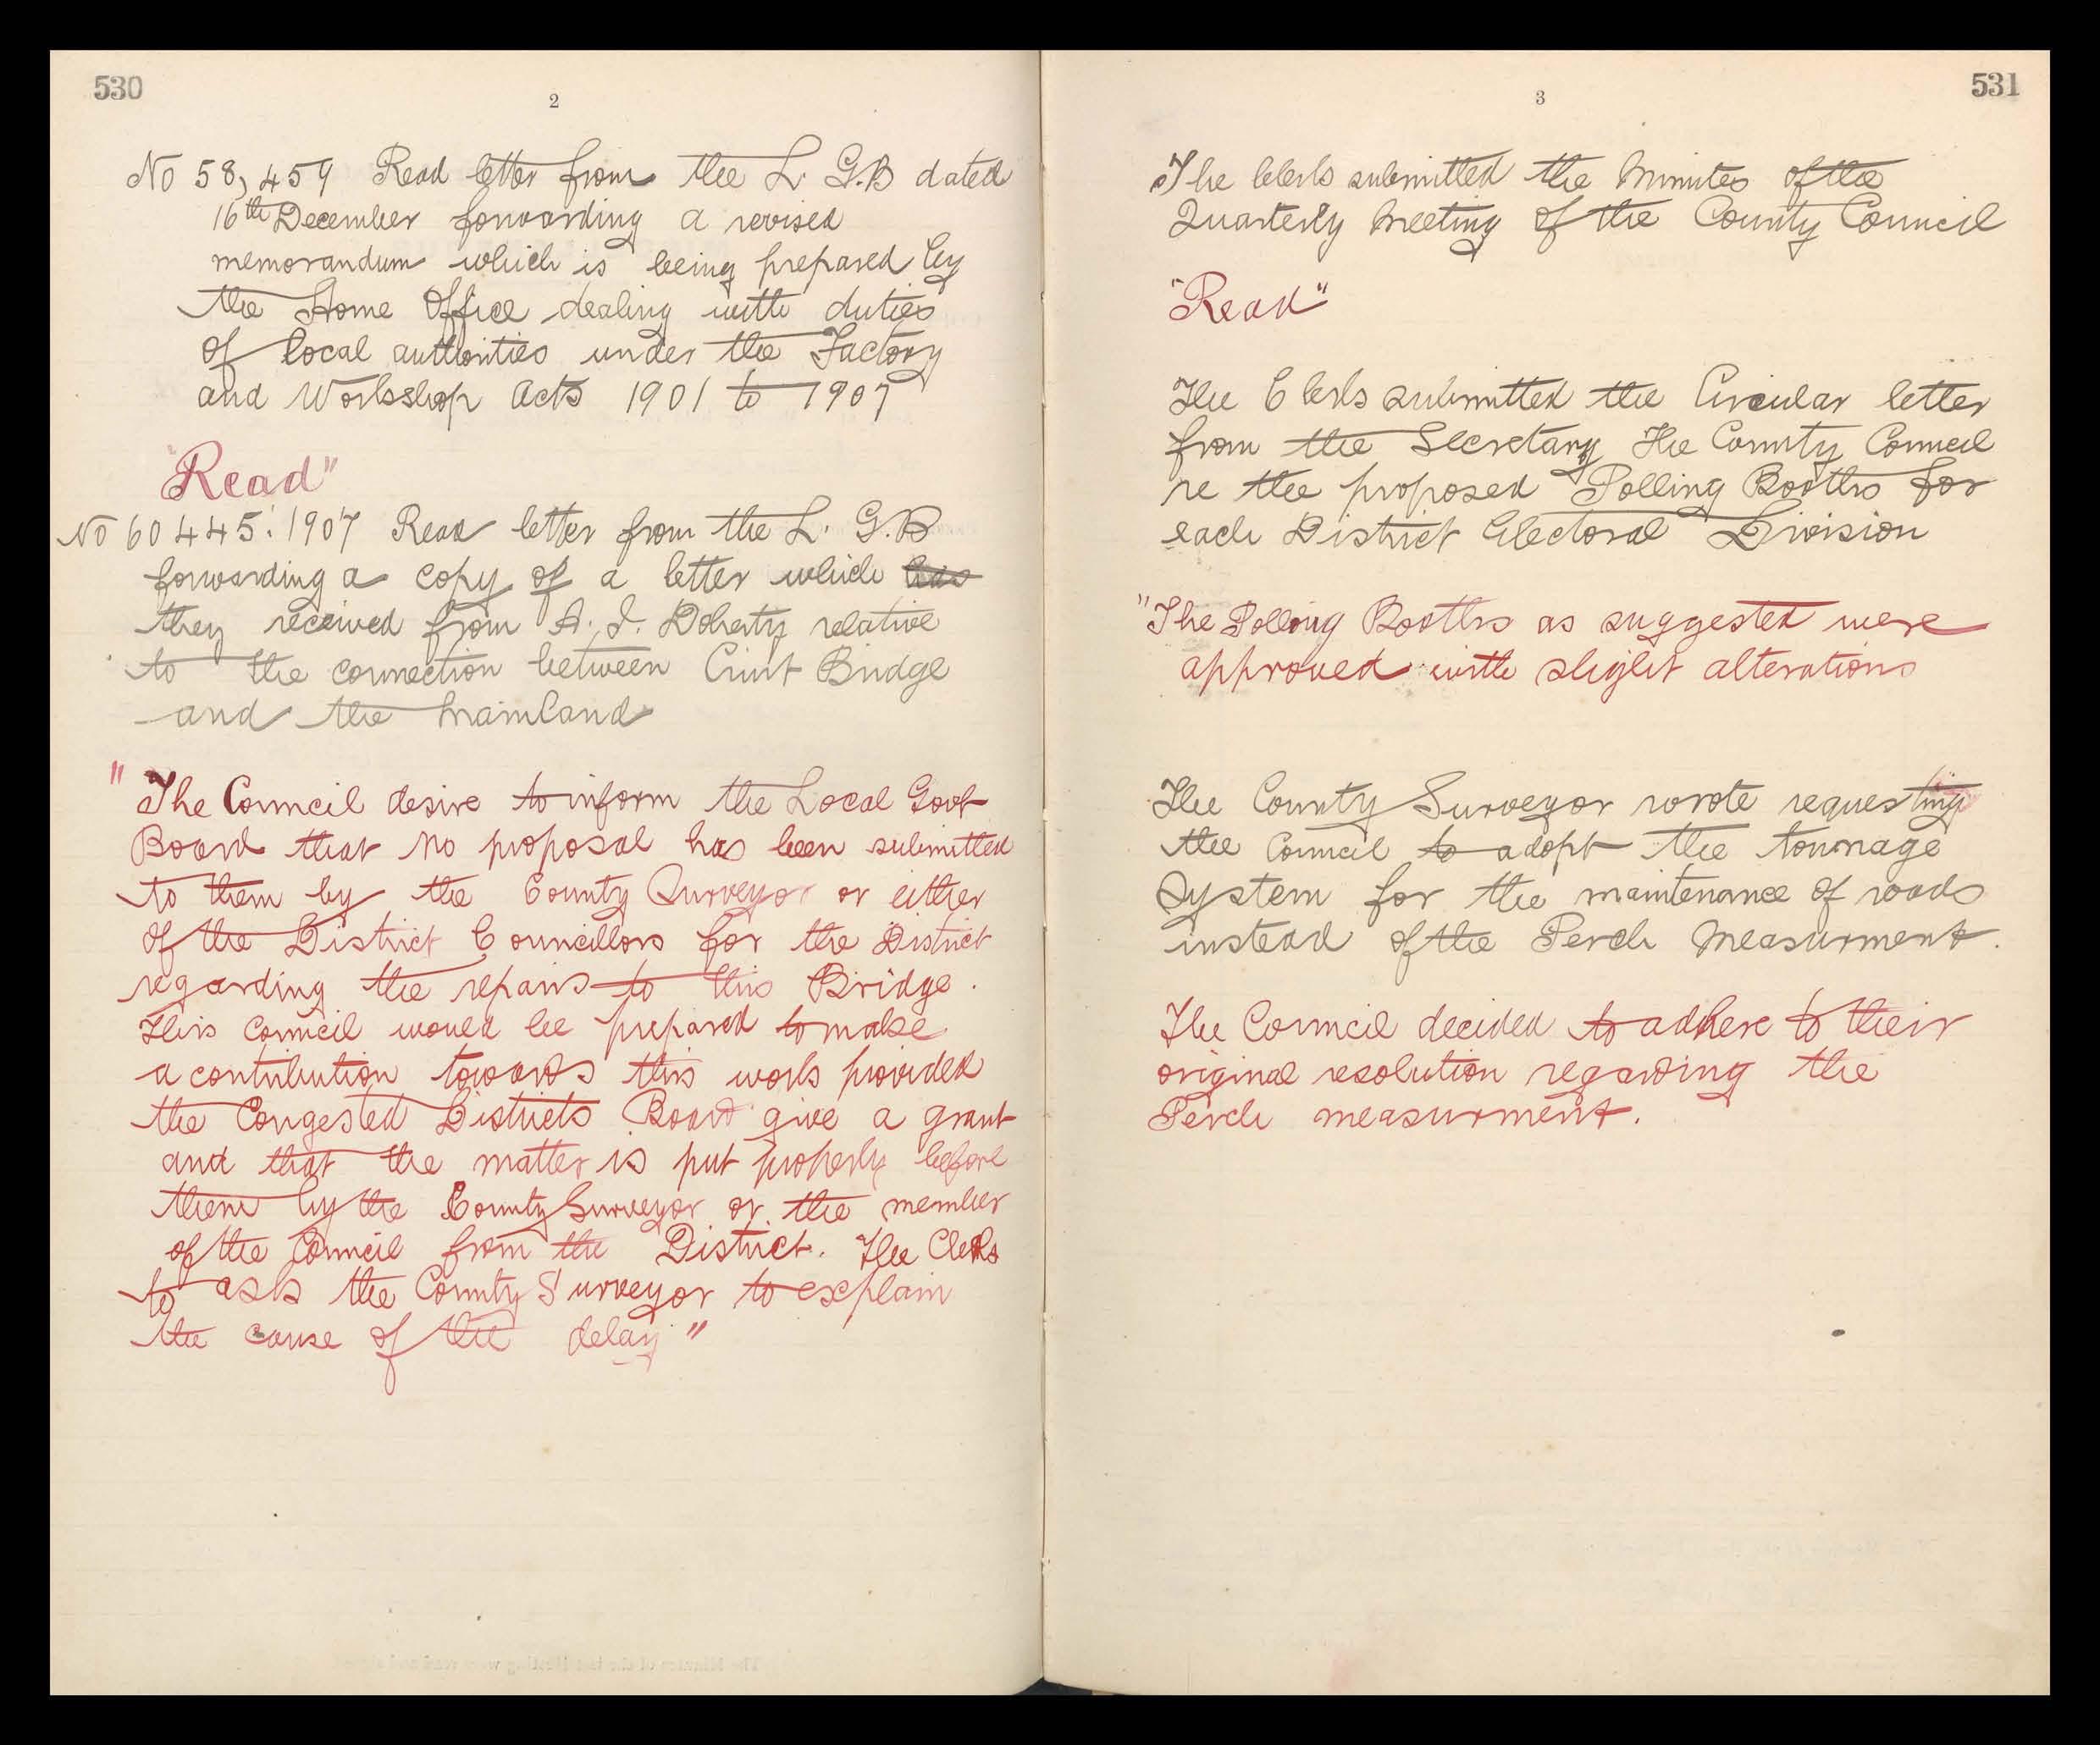 530
2
No 58,459 Read letter from the L. G.B dated
16th December forwarding a revised
memorandum which is being prepared by
the Home Office dealing with duties
of local authorities under the Factory
and Workshop Acts 1901 to 1907
"Read"
No 60445. 1907 Read letter from the L. G.B
forwarding a copy of a letter which has
they received from A. J. Doherty relative
to the connection between Cruit Bridge
and the Mainland
"The Council desire to inform the Local Govt
Board that no proposal has been submitted
to them by the County Surveyor or either
of the District Councillors for the District
regarding the repairs to this Bridge.
This Council would be prepared to make
a contribution towards this work provided
the Congested Districts Board give a grant
and that the matter is put properly before
them by the County Surveyor or the member
of the Council from the District. The Clerk
to ask the County Surveyor to explain
the cause of the delay"
531
3
The Clerk submitted the Minutes of the
Quarterly Meeting of the County Council
"Read"
The Clerk submitted the Circular letter
from the Secretary The County Council
re the proposed Polling Booths for
each District Electoral Division
"The Polling Booths as suggested were
approved with slight alterations
The County Surveyor wrote requesting
the Council to adopt the tonnage
System for the maintenance of roads
instead of the Perch Measurment.
The Council decided to adhere to their
original resolution regarding the
Perch measurment.